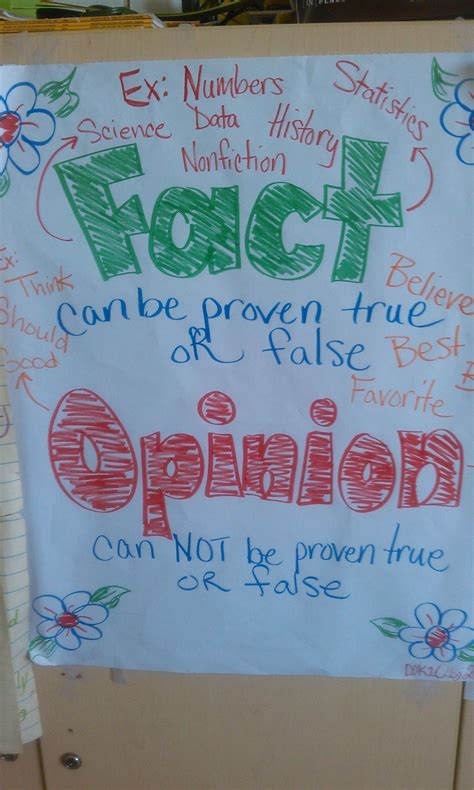 Ex: Numbers Statistics
Science Data History
Nonfiction
Fact
can be proven true
OR false
Ex:
Think
Should
Good
Believe
Best
Favorite
Opinion
can NOT be proven true
OR false